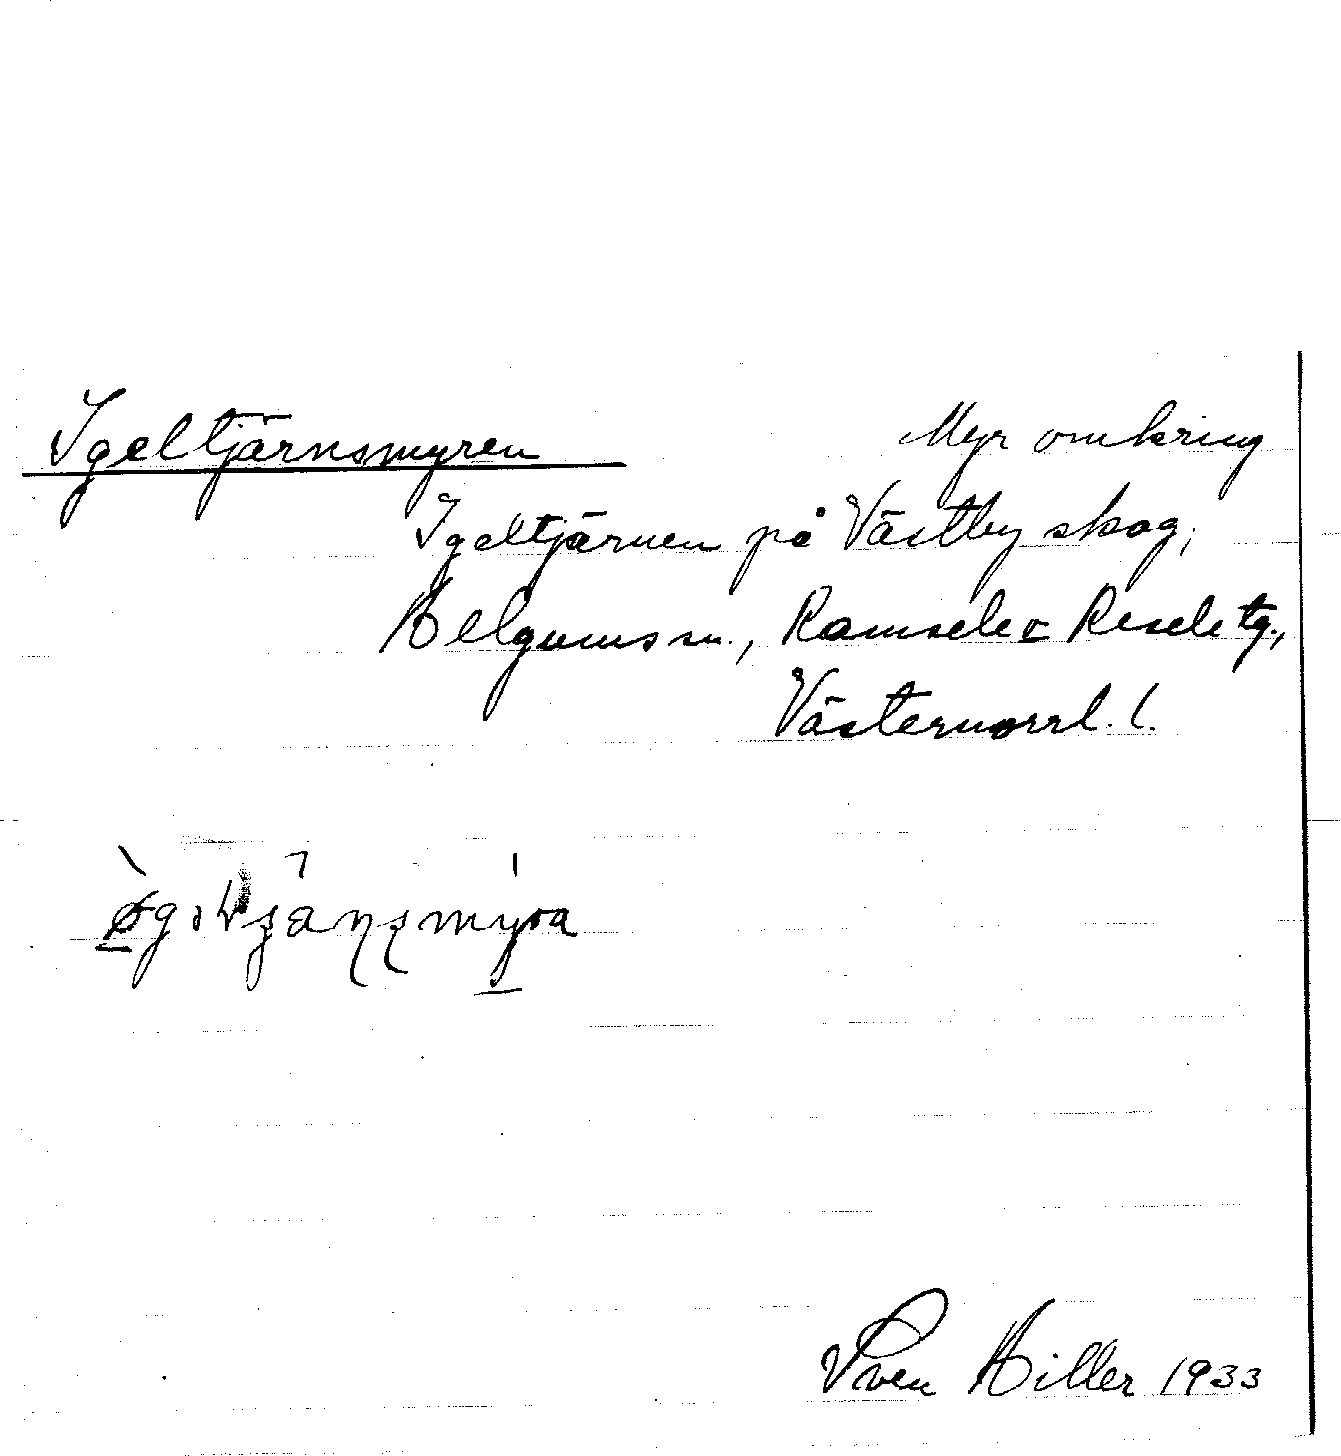 Igeltjärnsmyren Myr omkring
Igeltjärnen på Västby skog,
Helgums sn., Ramsele o Resele tg.,
Västernorrl. l.
Sven Hiller 1933